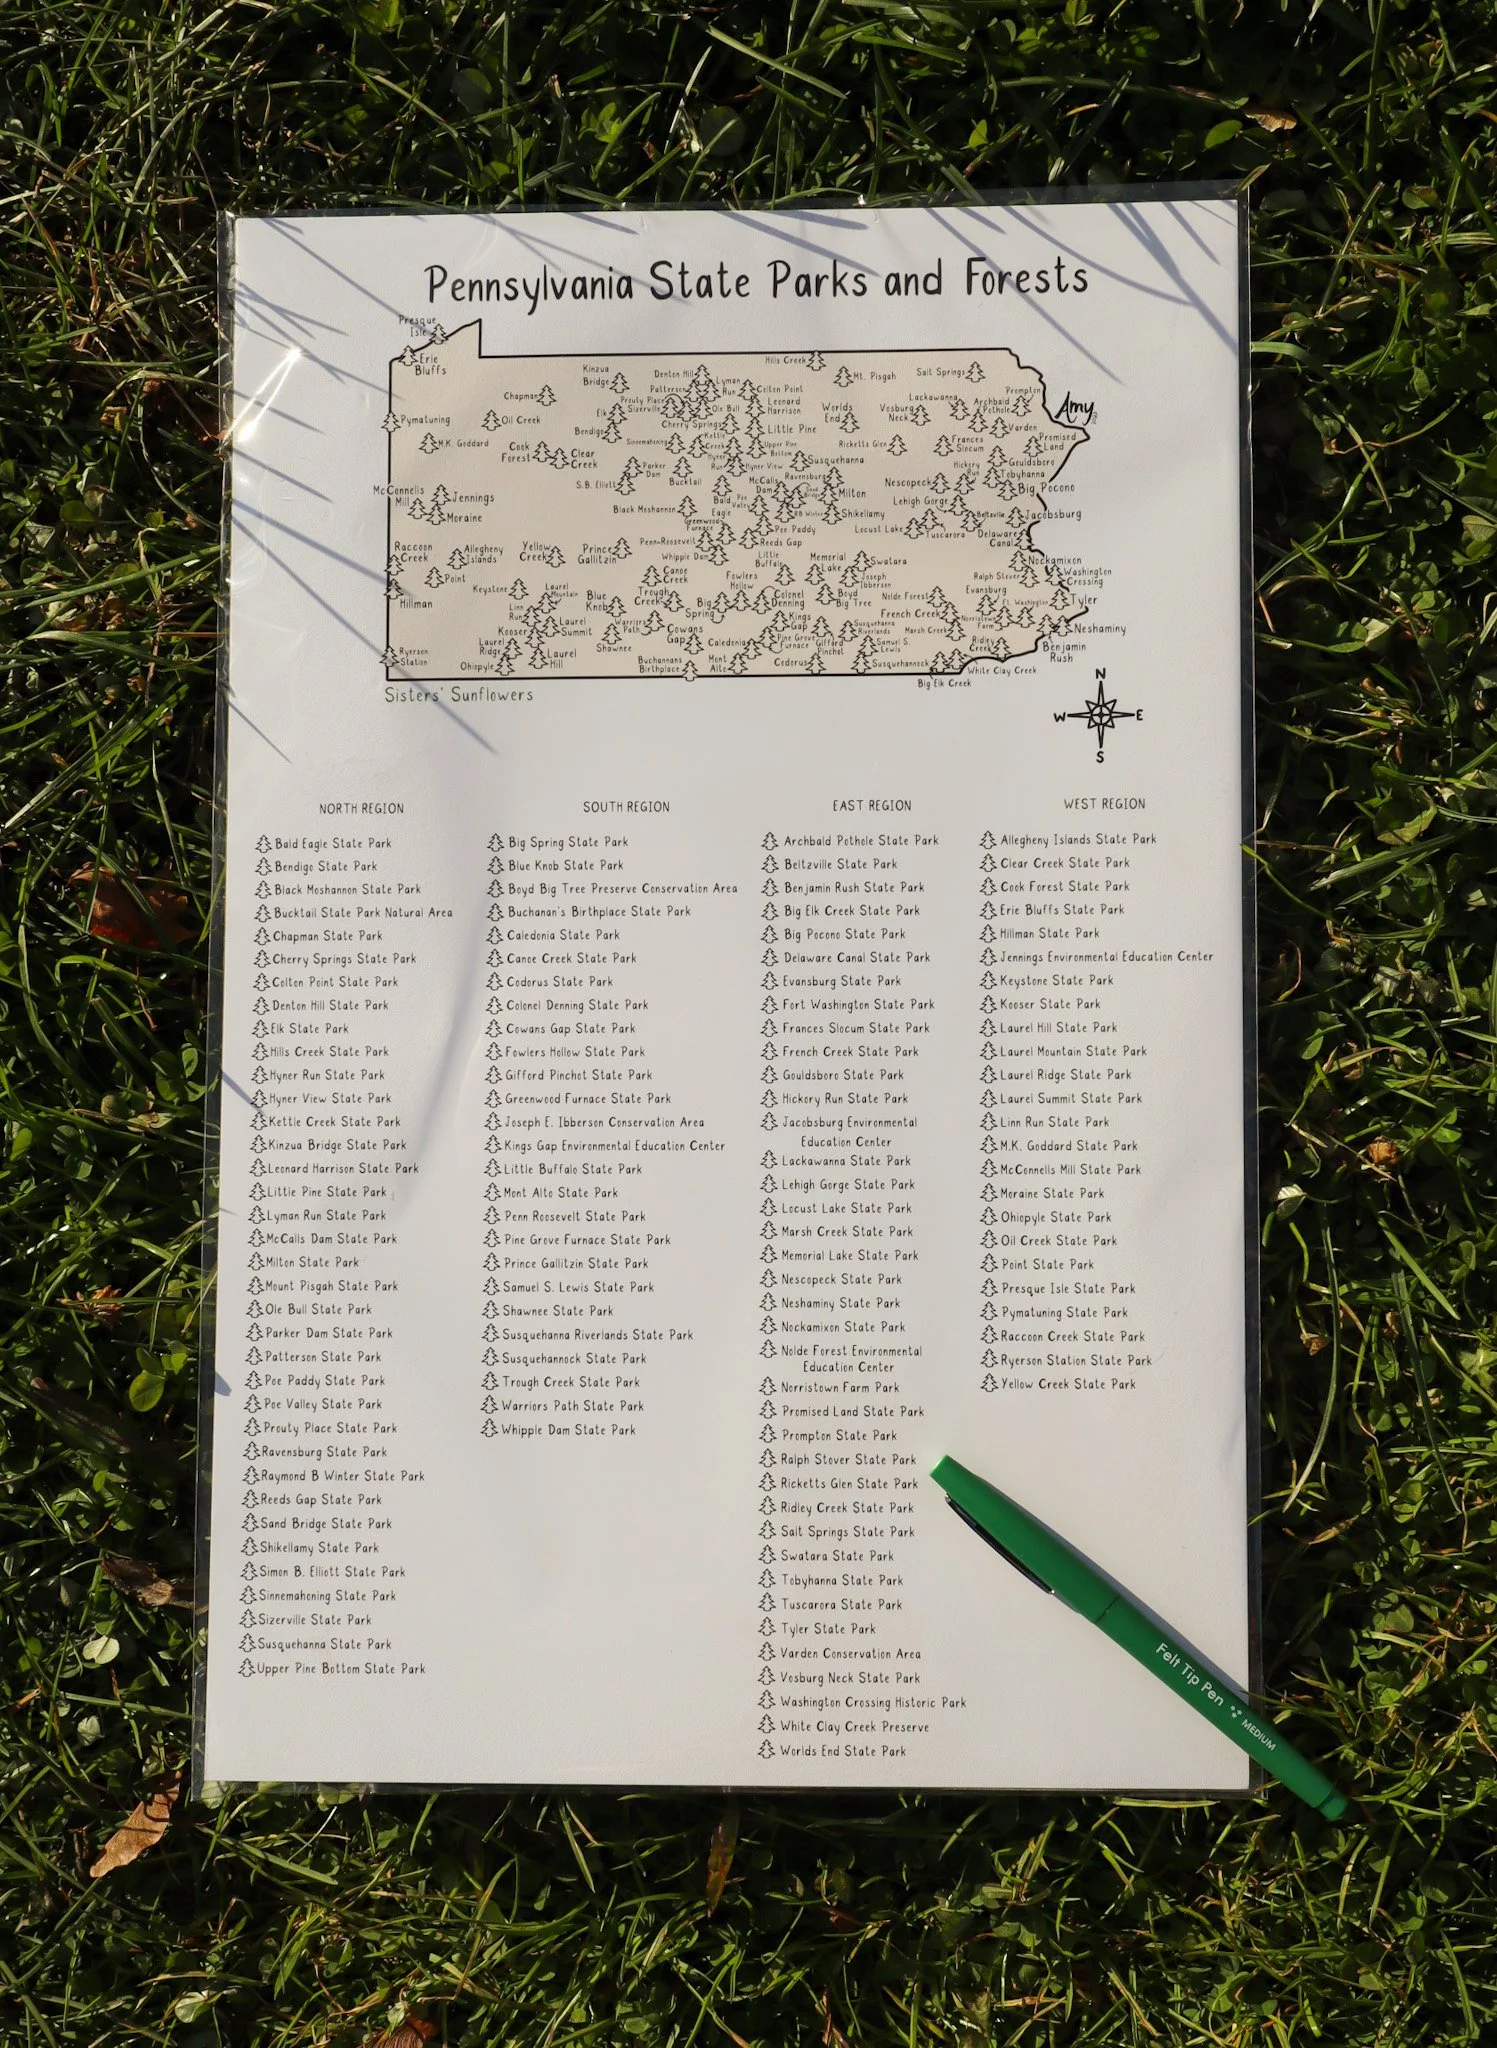 Pennsylvania State Parks and Forests
Presque
Isle
Erie
Bluffs
Hills Creek
Kinzua
Bridge
Denton Hill
Mt. Pisgah
Salt Springs
Chapman
Patterson
Lyman
Run
Colton Point
Prompton
Prouty Place
Sizerville
Ole Bull
Leonard
Harrison
Worlds
End
Vosburg
Neck
Lackawanna
Archbald
Pothole
Amy
Pymatuning
Oil Creek
Elk
Cherry Springs
Little Pine
Varden
Bendigo
M.K. Goddard
Cook
Forest
Clear
Creek
Sinnemahoning
Kettle
Creek
Upper Pine
Bottom
Ricketts Glen
Frances
Slocum
Promised
Land
Parker
Dam
Hyner
Run
Hyner View
Susquehanna
Hickory
Run
Gouldsboro
Tobyhanna
S.B. Elliott
Bucktail
McCalls
Dam
Ravensburg
Nescopeck
Big Pocono
McConnells
Mill
Jennings
Bald
Eagle
Poe
Valley
Milton
Lehigh Gorge
Moraine
Black Moshannon
RB Winter
Shikellamy
Beltzville
Jacobsburg
Greenwood
Furnace
Poe Paddy
Locust Lake
Tuscarora
Delaware
Canal
Raccoon
Creek
Allegheny
Islands
Yellow
Creek
Prince
Gallitzin
Penn-Roosevelt
Reeds Gap
Whipple Dam
Little
Buffalo
Memorial
Lake
Swatara
Nockamixon
Point
Canoe
Creek
Fowlers
Hollow
Joseph
Ibberson
Ralph Stover
Washington
Crossing
Hillman
Keystone
Laurel
Mountain
Blue
Knob
Trough
Creek
Big
Spring
Colonel
Denning
Boyd
Big Tree
Nolde Forest
Evansburg
Ft. Washington
Tyler
Linn
Run
Laurel
Summit
Warriors
Path
Kings
Gap
French Creek
Norristown
Farm
Neshaminy
Kooser
Shawnee
Cowans
Gap
Caledonia
Pine Grove
Furnace
Gifford
Pinchot
Susquehanna
Riverlands
Marsh Creek
Samuel S.
Lewis
Ridley
Creek
Benjamin
Rush
Ryerson
Station
Laurel
Ridge
Laurel
Hill
Ohiopyle
Buchannans
Birthplace
Mont
Alto
Codorus
Susquehannock
White Clay Creek
Big Elk Creek
Sisters' Sunflowers
N
W E
S
NORTH REGION
Bald Eagle State Park
Bendigo State Park
Black Moshannon State Park
Bucktail State Park Natural Area
Chapman State Park
Cherry Springs State Park
Colton Point State Park
Denton Hill State Park
Elk State Park
Hills Creek State Park
Hyner Run State Park
Hyner View State Park
Kettle Creek State Park
Kinzua Bridge State Park
Leonard Harrison State Park
Little Pine State Park
Lyman Run State Park
McCalls Dam State Park
Milton State Park
Mount Pisgah State Park
Ole Bull State Park
Parker Dam State Park
Patterson State Park
Poe Paddy State Park
Poe Valley State Park
Prouty Place State Park
Ravensburg State Park
Raymond B Winter State Park
Reeds Gap State Park
Sand Bridge State Park
Shikellamy State Park
Simon B. Elliott State Park
Sinnemahoning State Park
Sizerville State Park
Susquehanna State Park
Upper Pine Bottom State Park
SOUTH REGION
Big Spring State Park
Blue Knob State Park
Boyd Big Tree Preserve Conservation Area
Buchanan's Birthplace State Park
Caledonia State Park
Canoe Creek State Park
Codorus State Park
Colonel Denning State Park
Cowans Gap State Park
Fowlers Hollow State Park
Gifford Pinchot State Park
Greenwood Furnace State Park
Joseph E. Ibberson Conservation Area
Kings Gap Environmental Education Center
Little Buffalo State Park
Mont Alto State Park
Penn Roosevelt State Park
Pine Grove Furnace State Park
Prince Gallitzin State Park
Samuel S. Lewis State Park
Shawnee State Park
Susquehanna Riverlands State Park
Susquehannock State Park
Trough Creek State Park
Warriors Path State Park
Whipple Dam State Park
EAST REGION
Archbald Pothole State Park
Beltzville State Park
Benjamin Rush State Park
Big Elk Creek State Park
Big Pocono State Park
Delaware Canal State Park
Evansburg State Park
Fort Washington State Park
Frances Slocum State Park
French Creek State Park
Gouldsboro State Park
Hickory Run State Park
Jacobsburg Environmental
Education Center
Lackawanna State Park
Lehigh Gorge State Park
Locust Lake State Park
Marsh Creek State Park
Memorial Lake State Park
Nescopeck State Park
Neshaminy State Park
Nockamixon State Park
Nolde Forest Environmental
Education Center
Norristown Farm Park
Promised Land State Park
Prompton State Park
Ralph Stover State Park
Ricketts Glen State Park
Ridley Creek State Park
Salt Springs State Park
Swatara State Park
Tobyhanna State Park
Tuscarora State Park
Tyler State Park
Varden Conservation Area
Vosburg Neck State Park
Washington Crossing Historic Park
White Clay Creek Preserve
Worlds End State Park
WEST REGION
Allegheny Islands State Park
Clear Creek State Park
Cook Forest State Park
Erie Bluffs State Park
Hillman State Park
Jennings Environmental Education Center
Keystone State Park
Kooser State Park
Laurel Hill State Park
Laurel Mountain State Park
Laurel Ridge State Park
Laurel Summit State Park
Linn Run State Park
M.K. Goddard State Park
McConnells Mill State Park
Moraine State Park
Ohiopyle State Park
Oil Creek State Park
Point State Park
Presque Isle State Park
Pymatuning State Park
Raccoon Creek State Park
Ryerson Station State Park
Yellow Creek State Park
Felt Tip Pen MEDIUM